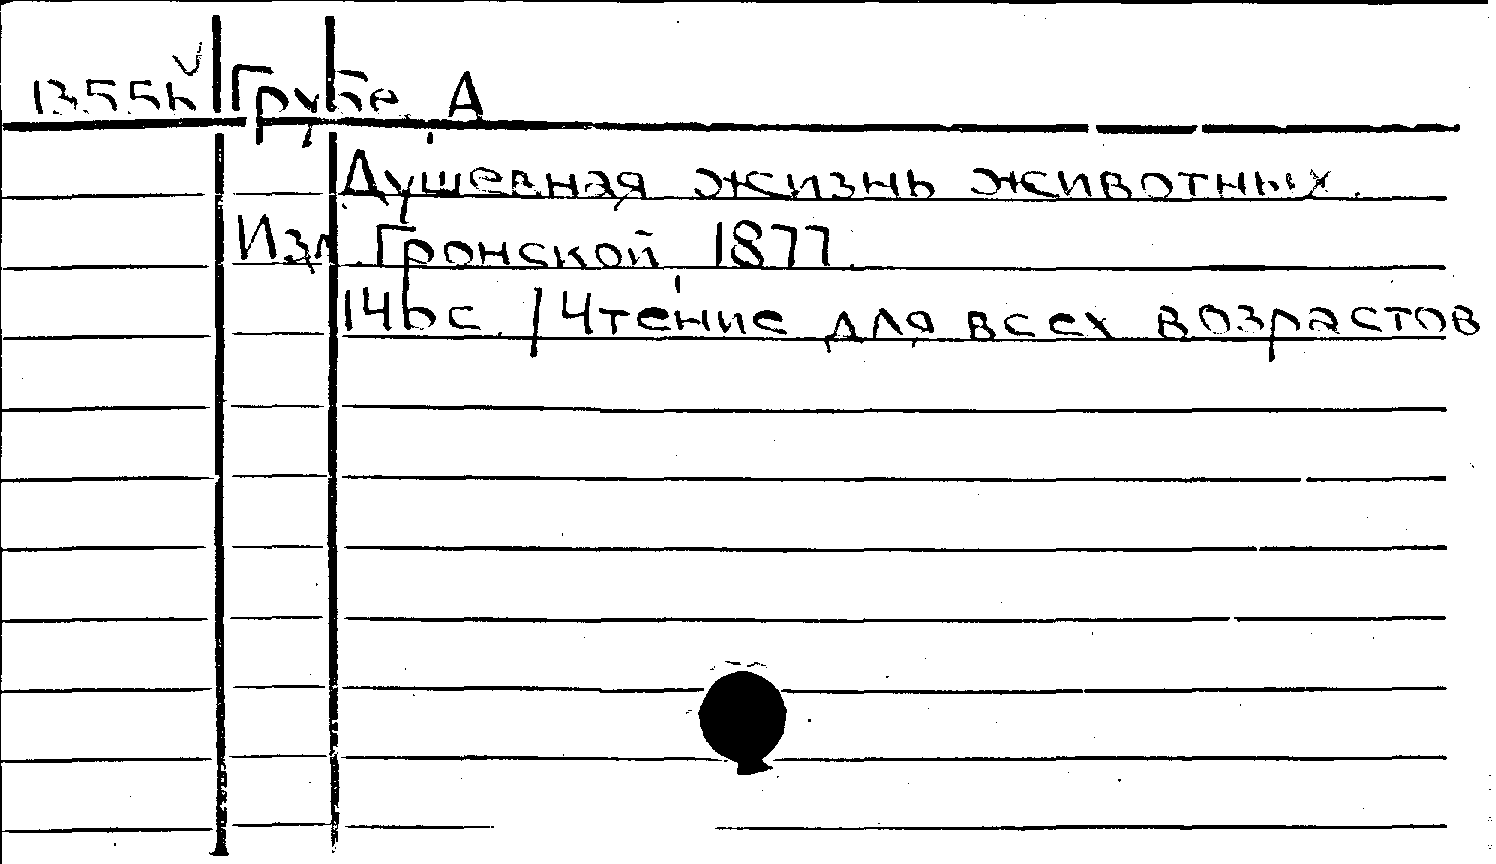 13556 Грубе, А
Душевная жизнь животных.
Изд. Гронской, 1877.
146 с. /Чтение для всех возрастов